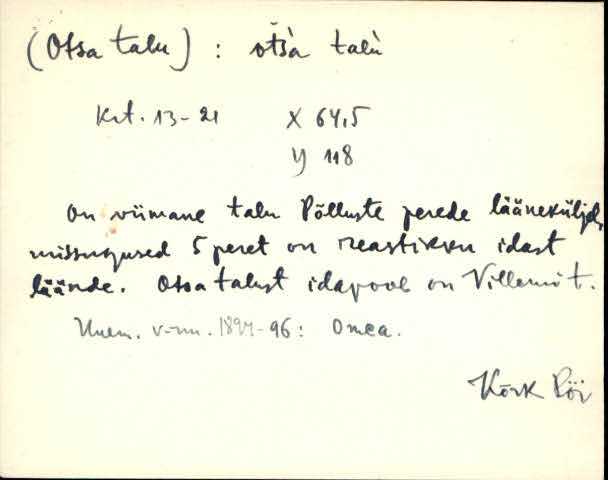 (Otsa talu) : otsà talù
Krt. 13-21 X 64,5
Y 118
On viimane talu Põlluste perede lääneküljel,
missugused 5 peret on reastikku idast
läände. Otsa talust idapool on Villemi t.
v-nn. 1894-96: Отса.
Kõrk Pöi